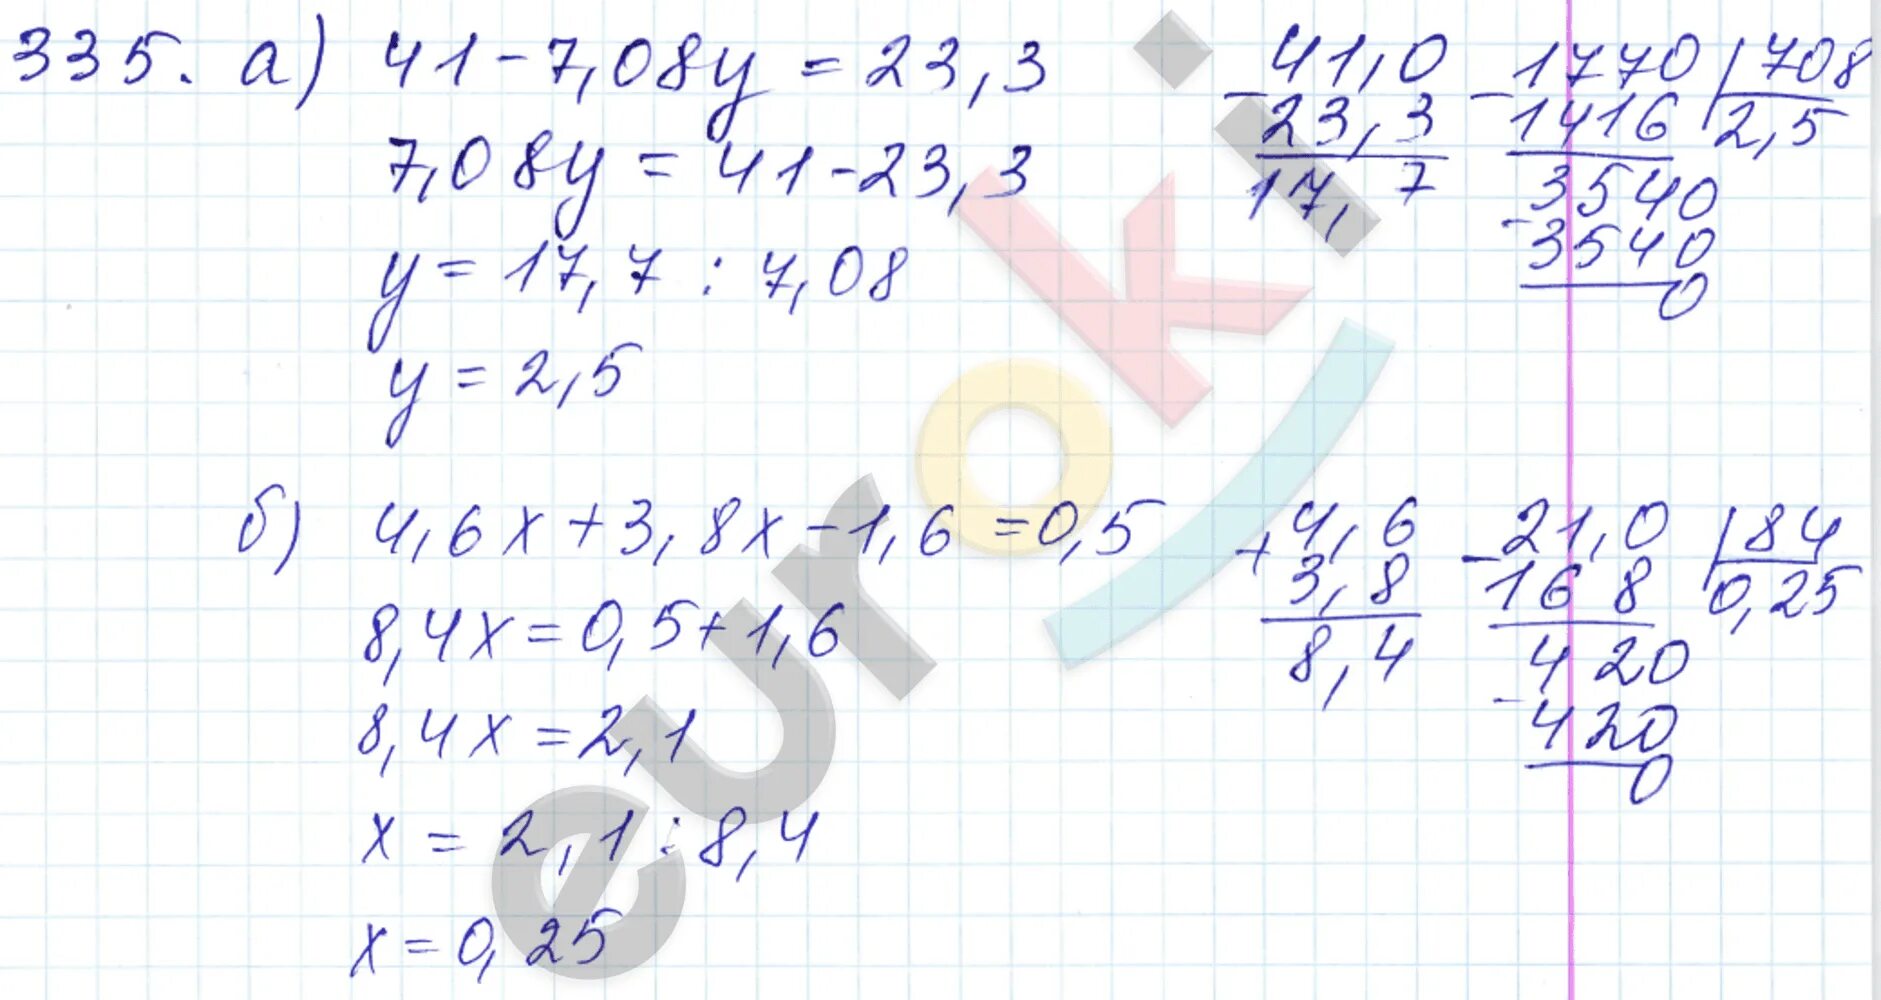 335. а) 41-7,08y=23,3
7,08y=41-23,3
y=17,7:7,08
y=2,5
41,0
-23,3
17,7
1770 | 708
-1416 | 2,5
3540
-3540
0
б) 4,6x+3,8x-1,6=0,5
8,4x=0,5+1,6
8,4x=2,1
x=2,1:8,4
x=0,25
4,6
+3,8
8,4
21,0 | 84
-168 | 0,25
420
-420
0
euroki